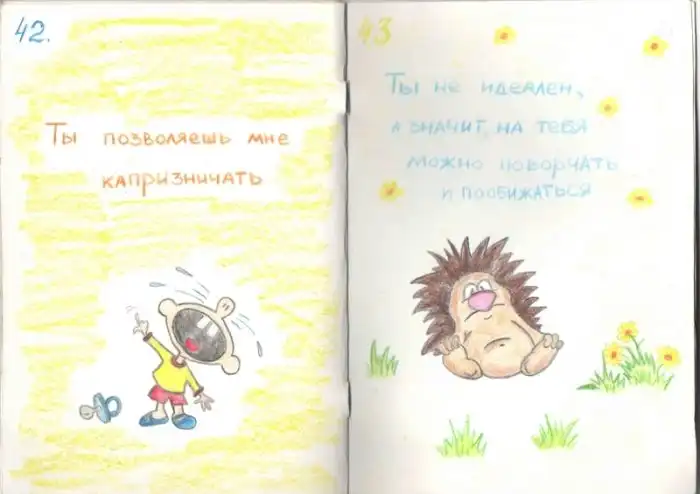 42.
Ты позволяешь мне
капризничать
43
Ты не идеален,
а значит, на тебя
можно поворчать
и пообижаться